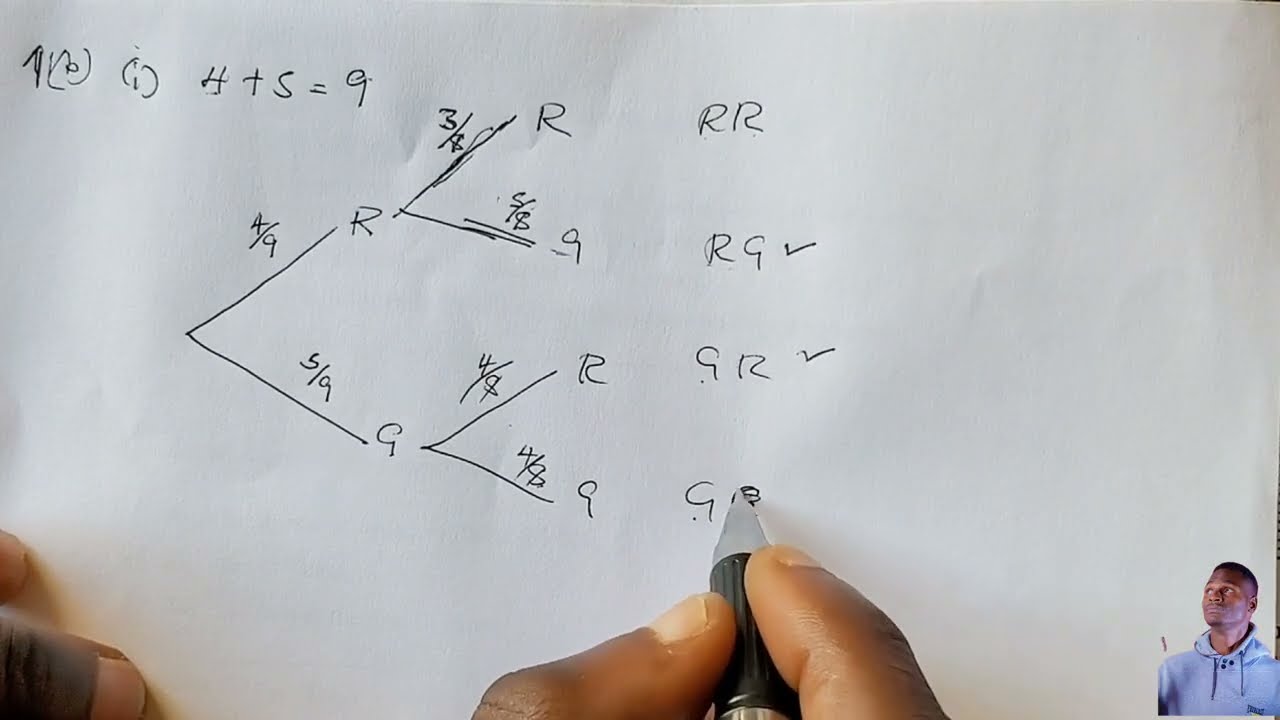 1(b) (i) 4 + 5 = 9
3/8 R RR
5/8
4/9 R G RG ✓
5/9 4/8 R GR ✓
G
4/8 G G